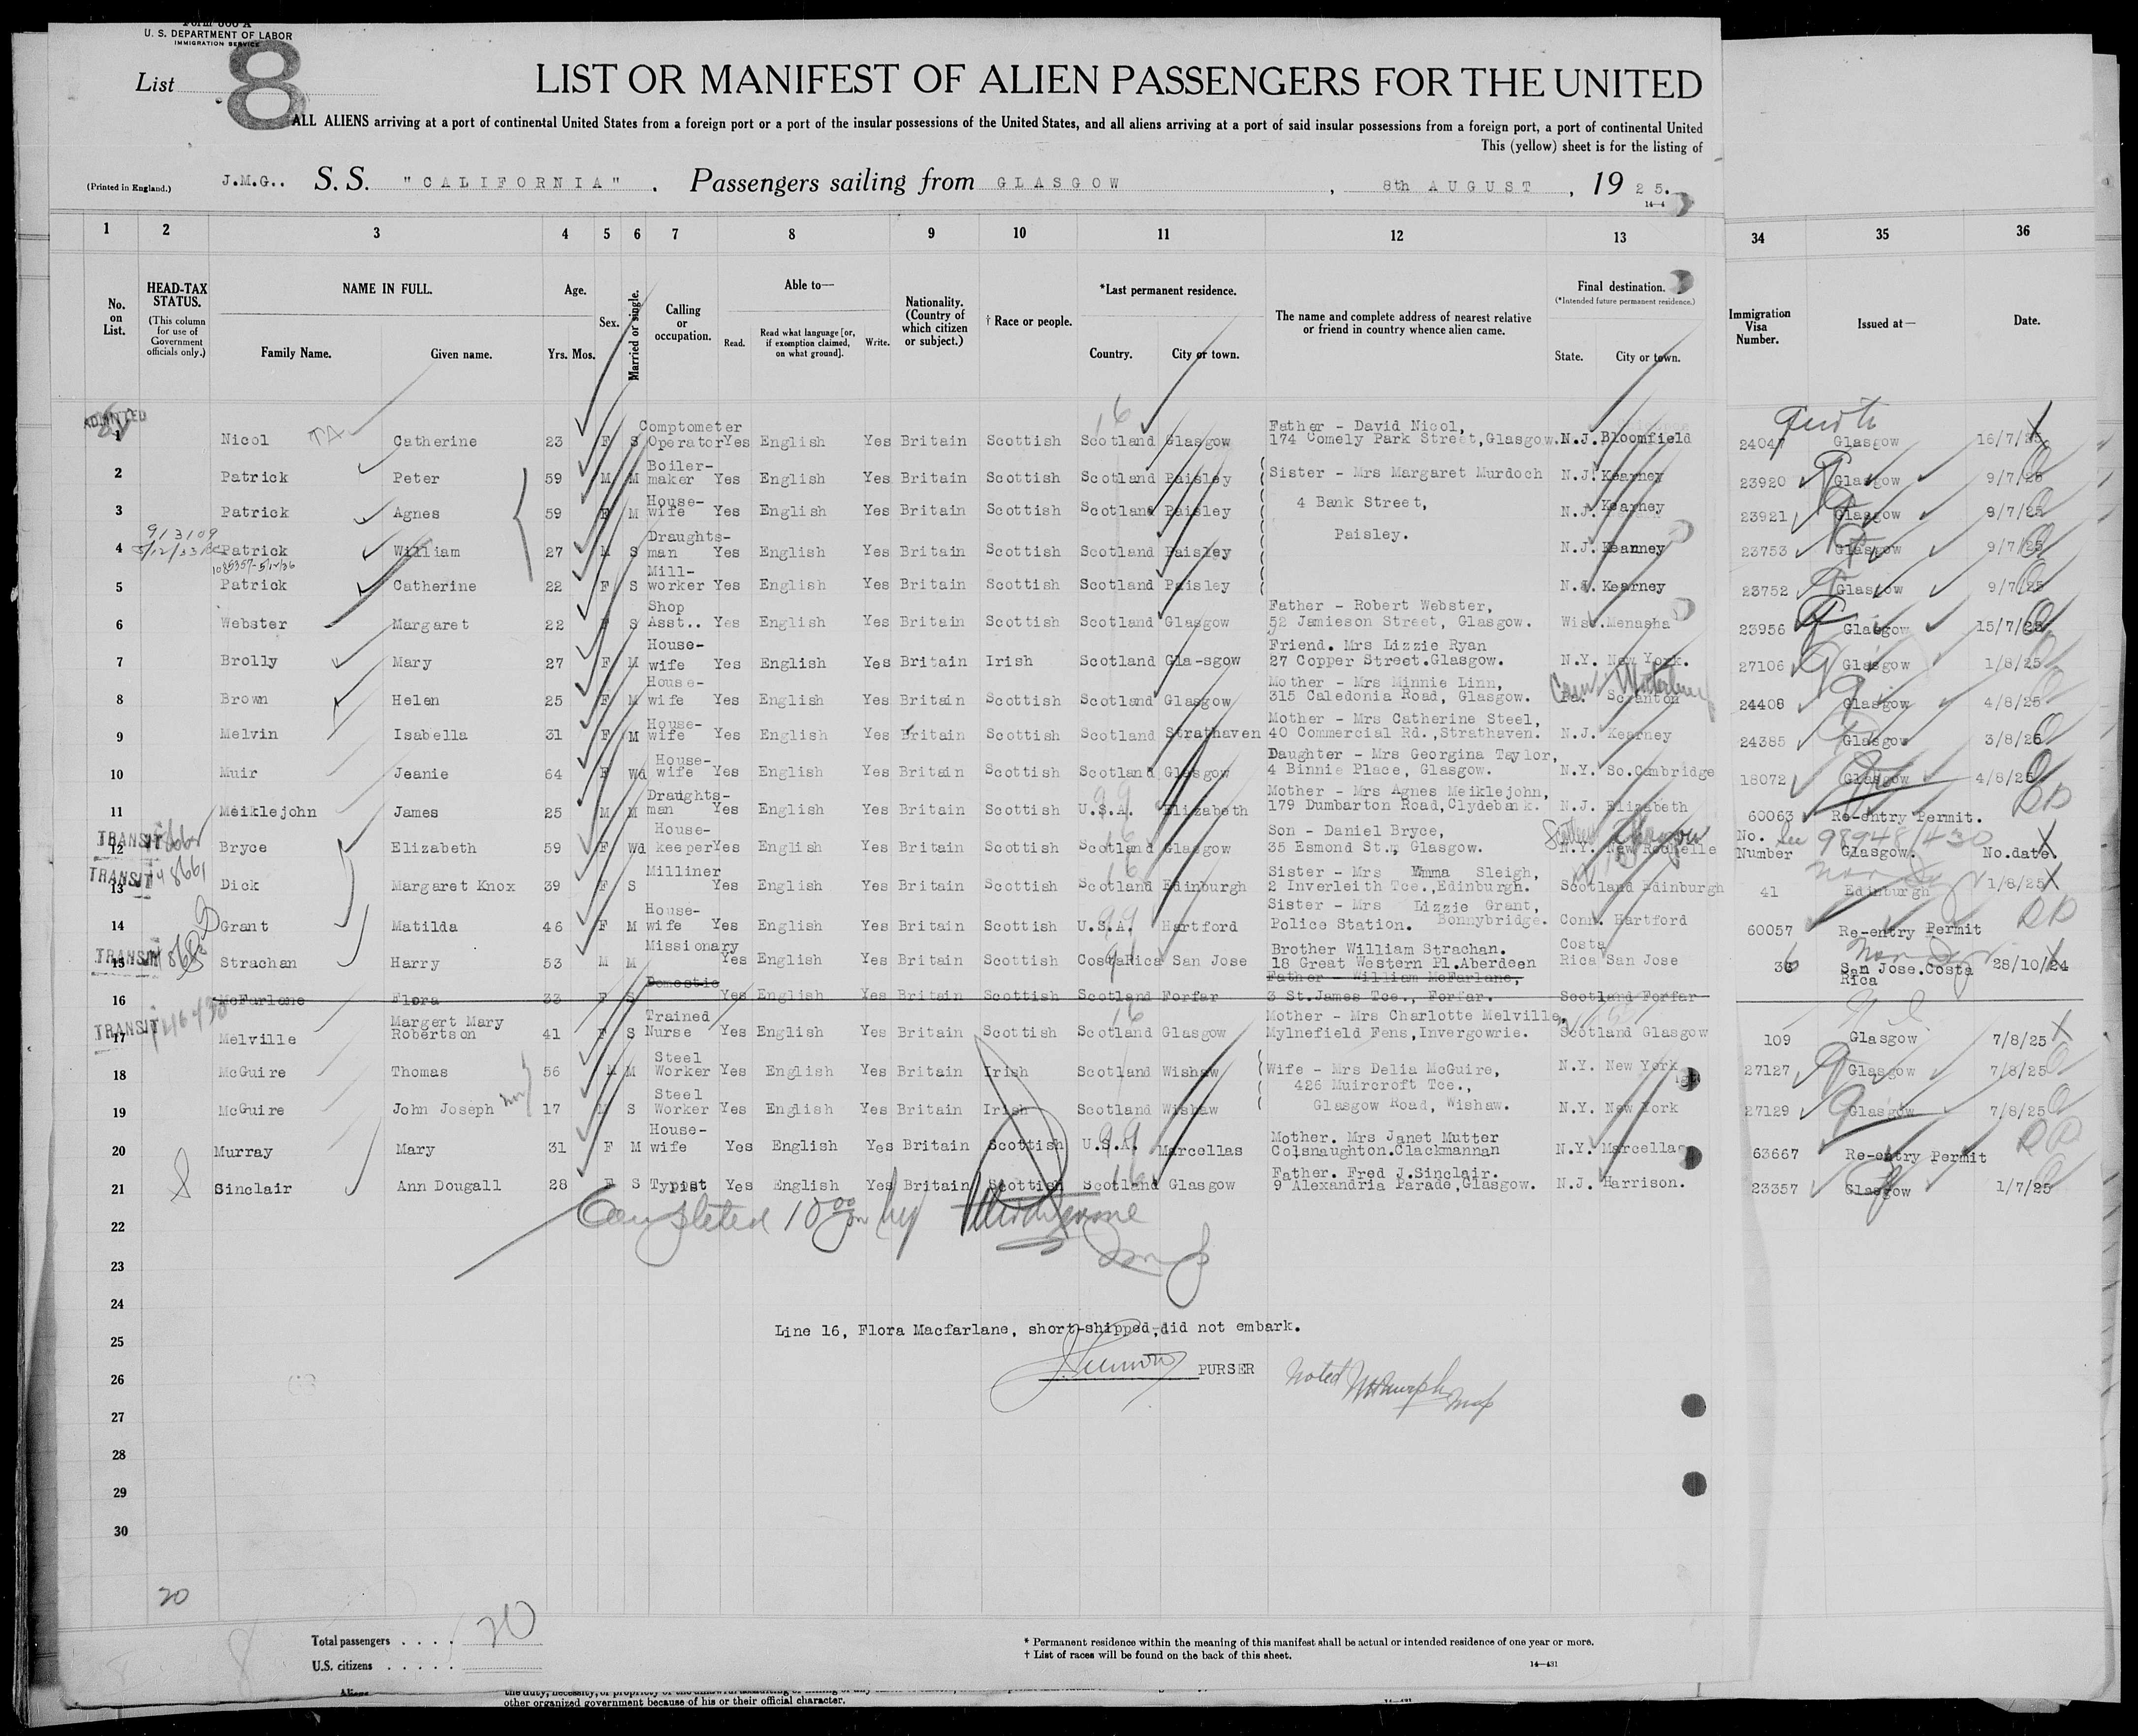 Form 600 A
U. S. DEPARTMENT OF LABOR
IMMIGRATION SERVICE
List 8
LIST OR MANIFEST OF ALIEN PASSENGERS FOR THE UNITED
ALL ALIENS arriving at a port of continental United States from a foreign port or a port of the insular possessions of the United States, and all aliens arriving at a port of said insular possessions from a foreign port, a port of continental United
This (yellow) sheet is for the listing of
(Printed in England.) J.M.G.. S. S. "CALIFORNIA". Passengers sailing from GLASGOW, 8th AUGUST, 1925.
14—4
1 2 3 4 5 6 7 8 9 10 11 12 13 34 35 36
No. on List.
HEAD-TAX STATUS. (This column for use of Government officials only.)
NAME IN FULL.
Family Name. Given name.
Age.
Yrs. Mos.
Sex.
Married or single.
Calling or occupation.
Able to—
Read. Read what language [or, if exemption claimed, on what ground]. Write.
Nationality. (Country of which citizen or subject.)
† Race or people.
*Last permanent residence.
Country. City or town.
The name and complete address of nearest relative or friend in country whence alien came.
Final destination.
(*Intended future permanent residence.)
State. City or town.
Immigration Visa Number.
Issued at—
Date.
ADMITTED
1 Nicol TA Catherine 23 F S Comptometer Operator Yes English Yes Britain Scottish Scotland Glasgow Father - David Nicol, 174 Comely Park Street, Glasgow. N.J. Bloomfield 24047 Glasgow 16/7/25
2 Patrick Peter 59 M M Boiler-maker Yes English Yes Britain Scottish Scotland Paisley Sister - Mrs Margaret Murdoch N.J. Kearney 23920 Glasgow 9/7/25
3 Patrick Agnes 59 F M House-wife Yes English Yes Britain Scottish Scotland Paisley 4 Bank Street, N.J. Kearney 23921 Glasgow 9/7/25
913109
4 Patrick William 27 M S Draughts-man Yes English Yes Britain Scottish Scotland Paisley Paisley. N.J. Kearney 23753 Glasgow 9/7/25
5 Patrick Catherine 22 F S Mill-worker Yes English Yes Britain Scottish Scotland Paisley N.J. Kearney 23752 Glasgow 9/7/25
6 Webster Margaret 22 F S Shop Asst.. Yes English Yes Britain Scottish Scotland Glasgow Father - Robert Webster, 52 Jamieson Street, Glasgow. Wisc. Menasha 23956 Glasgow 15/7/25
7 Brolly Mary 27 F M House-wife Yes English Yes Britain Irish Scotland Gla-sgow Friend. Mrs Lizzie Ryan 27 Copper Street.Glasgow. N.Y. New York. 27106 Glasgow 1/8/25
8 Brown Helen 25 F M House-wife Yes English Yes Britain Scottish Scotland Glasgow Mother - Mrs Minnie Linn, 315 Caledonia Road, Glasgow. Pa. Scranton Conn Waterbury 24408 Glasgow 4/8/25
9 Melvin Isabella 31 F M House-wife Yes English Yes Britain Scottish Scotland Strathaven Mother - Mrs Catherine Steel, 40 Commercial Rd., Strathaven. N.J. Kearney 24385 Glasgow 3/8/25
10 Muir Jeanie 64 F Wd House-wife Yes English Yes Britain Scottish Scotland Glasgow Daughter - Mrs Georgina Taylor, 4 Binnie Place, Glasgow. N.Y. So.Cambridge 18072 Glasgow 4/8/25
11 Meiklejohn James 25 M M Draughts-man Yes English Yes Britain Scottish U.S.A. Elizabeth Mother - Mrs Agnes Meiklejohn, 179 Dumbarton Road, Clydebank. N.J. Elizabeth 60063 Re-entry Permit.
TRANSIT
12 Bryce Elizabeth 59 F Wd House-keeper Yes English Yes Britain Scottish Scotland Glasgow Son - Daniel Bryce, 35 Esmond St., Glasgow. N.Y. New Rochelle Scotland Glasgow No. Number Glasgow. 98948/430 No.date.
TRANSIT 48661
13 Dick Margaret Knox 39 F S Milliner Yes English Yes Britain Scottish Scotland Edinburgh Sister - Mrs Emma Sleigh, 2 Inverleith Tce., Edinburgh. Scotland Edinburgh 41 Edinburgh 1/8/25
14 Grant Matilda 46 F M House-wife Yes English Yes Britain Scottish U.S.A. Hartford Sister - Mrs Lizzie Grant, Police Station. Bonnybridge. Conn. Hartford 60057 Re-entry Permit
TRANSIT
15 Strachan Harry 53 M M Missionary Yes English Yes Britain Scottish Costa Rica San Jose Brother William Strachan. 18 Great Western Pl.Aberdeen Costa Rica San Jose 36 San Jose.Costa Rica 28/10/24
16 McFarlane Flora 33 F S Domestic Yes English Yes Britain Scottish Scotland Forfar Father - William McFarlane, 3 St.James Tce., Forfar. Scotland Forfar
TRANSIT
17 Melville Margert Mary Robertson 41 F S Trained Nurse Yes English Yes Britain Scottish Scotland Glasgow Mother - Mrs Charlotte Melville, Mylnefield Fens, Invergowrie. Scotland Glasgow 109 Glasgow 7/8/25
18 McGuire Thomas 56 M M Steel Worker Yes English Yes Britain Irish Scotland Wishaw Wife - Mrs Delia McGuire, N.Y. New York 27127 Glasgow 7/8/25
426 Muircroft Tce.,
19 McGuire John Joseph 17 M S Steel Worker Yes English Yes Britain Irish Scotland Wishaw Glasgow Road, Wishaw. N.Y. New York 27129 Glasgow 7/8/25
20 Murray Mary 31 F M House-wife Yes English Yes Britain Scottish U.S.A. Marcellas Mother. Mrs Janet Mutter Colsnaughton.Clackmannan N.Y. Marcellas 63667 Re-entry Permit
21 Sinclair Ann Dougall 28 F S Typist Yes English Yes Britain Scottish Scotland Glasgow Father. Fred J.Sinclair. 9 Alexandria Parade, Glasgow. N.J. Harrison. 23357 Glasgow 1/7/25
Completed 10 00 by
22
23
24
Line 16, Flora Macfarlane, short-shipped, did not embark.
25
PURSER Noted
26
27
28
29
30
20
Total passengers . . . . 20
U.S. citizens . . . . .
* Permanent residence within the meaning of this manifest shall be actual or intended residence of one year or more.
† List of races will be found on the back of this sheet.
14—431
Aliens
other organized government because of his or their official character.